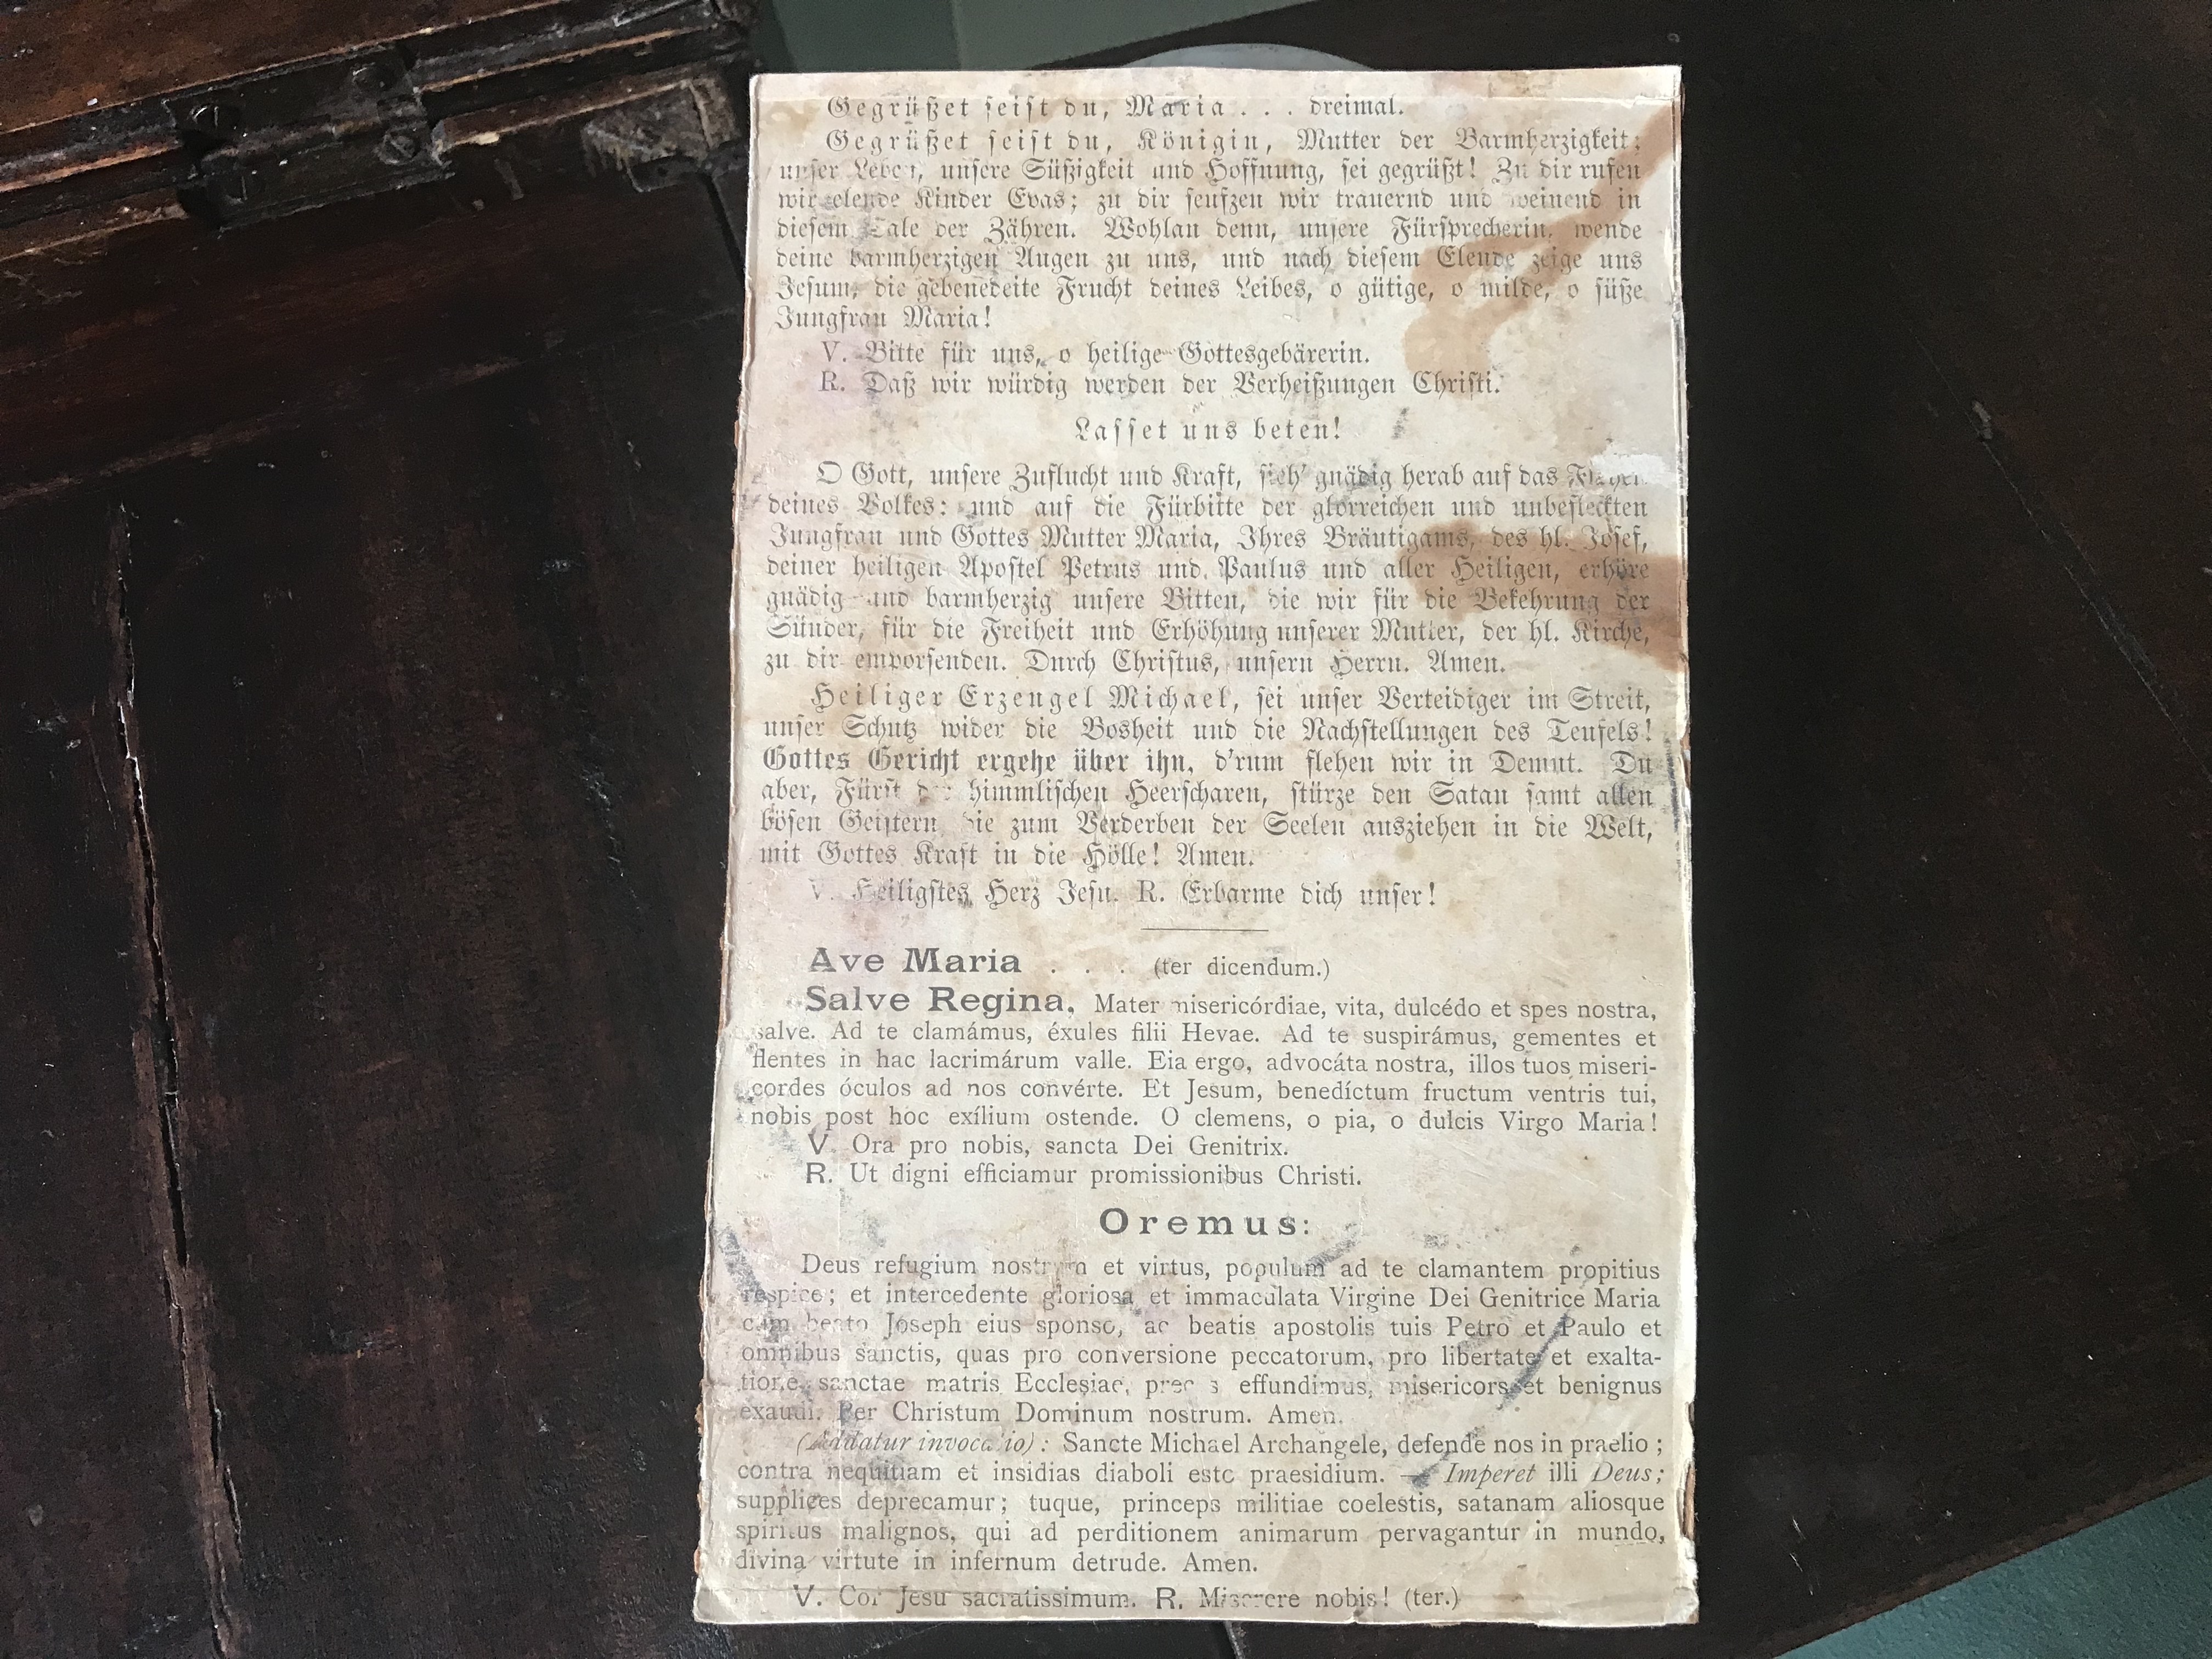 Gegrüßet seist du, Maria . . . dreimal.
Gegrüßet seist du, Königin, Mutter der Barmherzigkeit;
unser Leben, unsere Süßigkeit und Hoffnung, sei gegrüßt! Zu dir rufen
wir elende Kinder Evas; zu dir seufzen wir trauernd und weinend in
diesem Tale der Zähren. Wohlan denn, unsere Fürsprecherin, wende
deine barmherzigen Augen zu uns, und nach diesem Elende zeige uns
Jesum, die gebenedeite Frucht deines Leibes, o gütige, o milde, o süße
Jungfrau Maria!
V. Bitte für uns, o heilige Gottesgebärerin.
R. Daß wir würdig werden der Verheißungen Christi.
Lasset uns beten!
O Gott, unsere Zuflucht und Kraft, sieh' gnädig herab auf das Flehen
deines Volkes: und auf die Fürbitte der glorreichen und unbefleckten
Jungfrau und Gottes Mutter Maria, Ihres Bräutigams, des hl. Josef,
deiner heiligen Apostel Petrus und Paulus und aller Heiligen, erhöre
gnädig und barmherzig unsere Bitten, die wir für die Bekehrung der
Sünder, für die Freiheit und Erhöhung unserer Mutter, der hl. Kirche,
zu dir emporsenden. Durch Christus, unsern Herrn. Amen.
Heiliger Erzengel Michael, sei unser Verteidiger im Streit,
unser Schutz wider die Bosheit und die Nachstellungen des Teufels!
Gottes Gericht ergehe über ihn, d'rum flehen wir in Demut. Du
aber, Fürst der himmlischen Heerscharen, stürze den Satan samt allen
bösen Geistern, die zum Verderben der Seelen ausziehen in die Welt,
mit Gottes Kraft in die Hölle! Amen.
V. Heiligstes Herz Jesu. R. Erbarme dich unser!
Ave Maria . . . (ter dicendum.)
Salve Regina, Mater misericórdiae, vita, dulcédo et spes nostra,
salve. Ad te clamámus, éxules filii Hevae. Ad te suspirámus, gementes et
flentes in hac lacrimárum valle. Eia ergo, advocáta nostra, illos tuos miseri-
cordes óculos ad nos convérte. Et Jesum, benedíctum fructum ventris tui,
nobis post hoc exílium ostende. O clemens, o pia, o dulcis Virgo Maria!
V. Ora pro nobis, sancta Dei Genitrix.
R. Ut digni efficiamur promissionibus Christi.
Oremus:
Deus refugium nostrum et virtus, populum ad te clamantem propitius
respice; et intercedente gloriosa et immaculata Virgine Dei Genitrice Maria
cum beato Joseph eius sponso, ac beatis apostolis tuis Petro et Paulo et
omnibus sanctis, quas pro conversione peccatorum, pro libertate et exalta-
tione sanctae matris Ecclesiae, preces effundimus, misericors et benignus
exaudi. Per Christum Dominum nostrum. Amen.
(Addatur invocatio): Sancte Michael Archangele, defende nos in praelio;
contra nequitiam et insidias diaboli esto praesidium. — Imperet illi Deus;
supplices deprecamur; tuque, princeps militiae coelestis, satanam aliosque
spiritus malignos, qui ad perditionem animarum pervagantur in mundo,
divina virtute in infernum detrude. Amen.
V. Cor Jesu sacratissimum. R. Miserere nobis! (ter.)